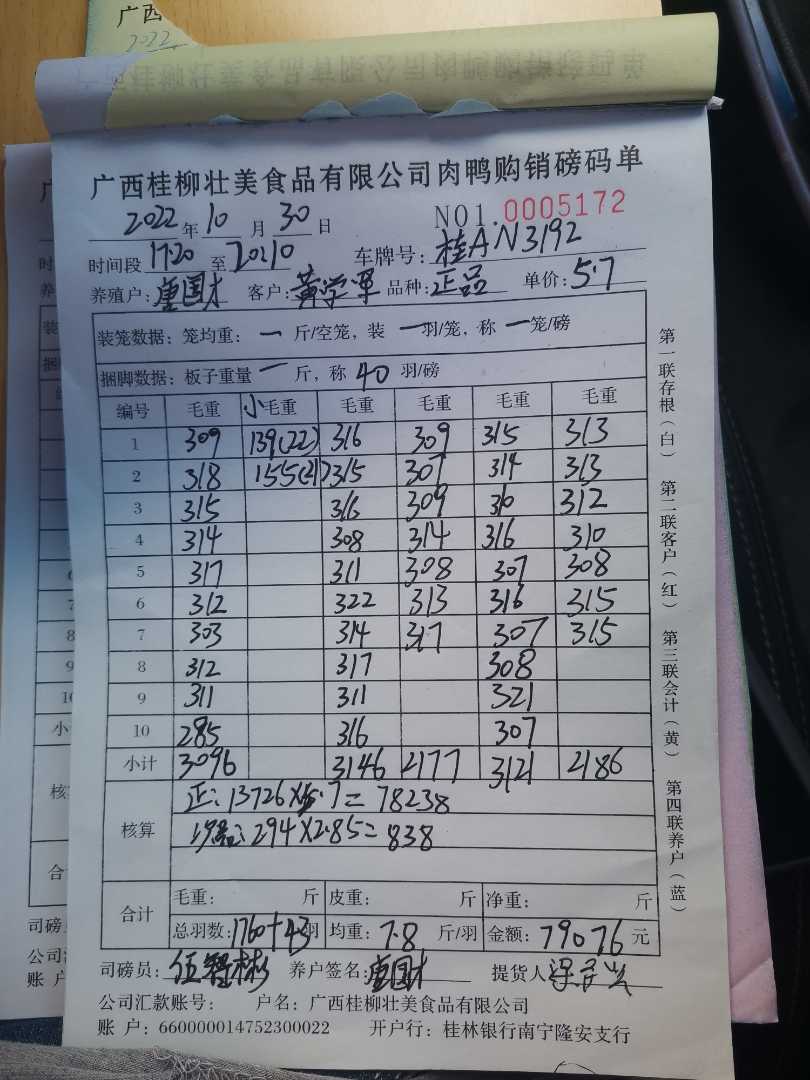 广西
2022
广西桂柳壮美食品有限公司肉鸭购销磅码单
2022年10月30日 NO1.0005172
时间段17:20至20:10 车牌号:桂AN3192
养殖户:唐国才 客户:黄学军 品种:正品 单价:5.7
装笼数据:笼均重:一斤/空笼,装一羽/笼,称一笼/磅
捆脚数据:板子重量一斤,称40羽/磅
编号 毛重 小毛重 毛重 毛重 毛重 毛重
1 309 139(22) 316 309 315 313
2 318 155(21) 315 307 314 313
3 315 316 309 310 312
4 314 308 314 316 310
5 317 311 308 307 308
6 312 322 313 316 315
7 303 314 317 307 315
8 312 317 308
9 311 311 321
10 285 316 307
小计 3096 3146 2177 3121 2186
核算
正:13726×5.7=78238
294×2.85=838
合计
毛重: 斤 皮重: 斤 净重: 斤
总羽数:1760+43羽 均重:7.8斤/羽 金额:79076元
司磅员:伍智彬 养户签名:唐国才 提货人
公司汇款账号: 户名:广西桂柳壮美食品有限公司
账 户:660000014752300022 开户行:桂林银行南宁隆安支行
第一联存根(白) 第二联客户(红) 第三联会计(黄) 第四联养户(蓝)